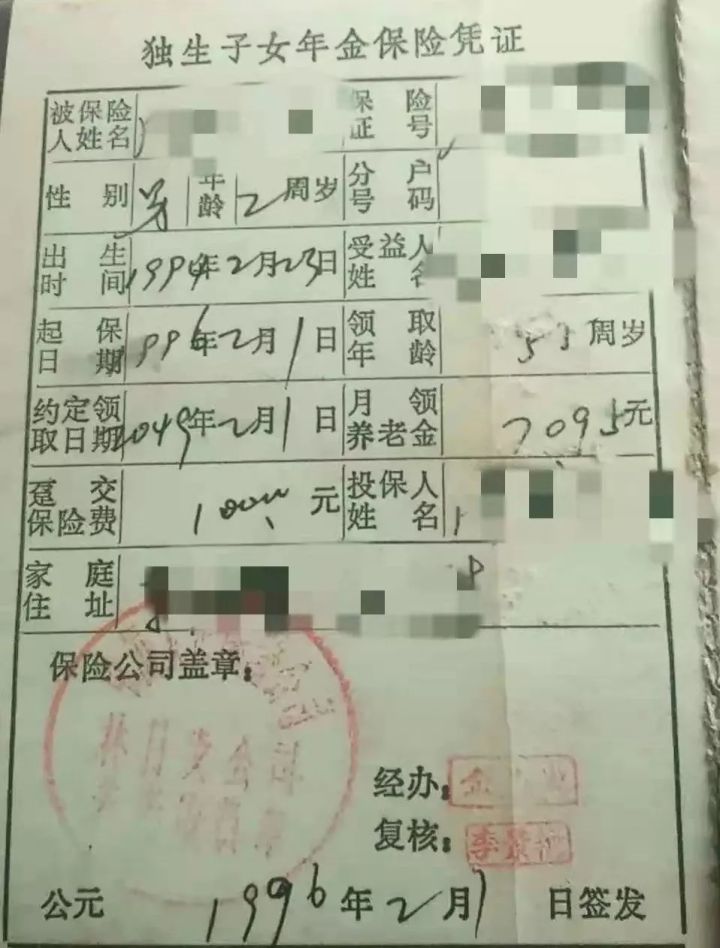 独生子女年金保险凭证
被保险人姓名 保险证号
性别 男 年龄 2周岁 分户号码
出生时间 1994年2月23日 受益人姓名
起保日期 1996年2月1日 领取年龄 55周岁
约定领取日期 2049年2月1日 月领养老金 7095元
趸交保险费 1000元 投保人姓名
家庭住址
保险公司盖章:
经办:
复核:
公元 1996年2月1日签发